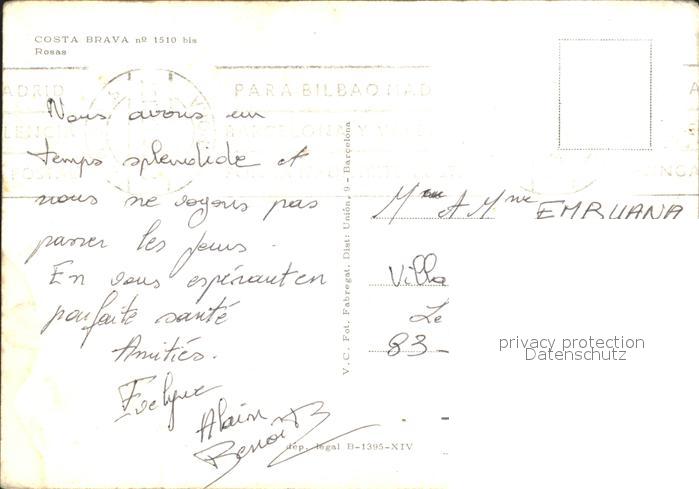 COSTA BRAVA nº 1510 bis
Rosas
ADRID
PARA BILBAO MAD
LENCIA
BARCELONA Y
Nous avons un
temps splendide et
nous ne voyons pas
passer les jours.
En vous espérant en
parfaite santé
Amitiés.
Evelyne
Alain
Benoit
V. C. Fot. Fabregat. Dist: Unión, 9 - Barcelona
M et Mme EMRUANA
Villa
Le
83
privacy protection
Datenschutz
dép. legal B-1395-XIV